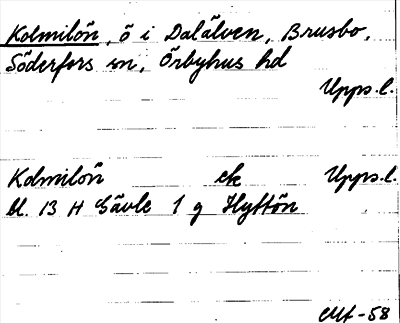 Kolmilön, ö i Dalälven, Brusbo,
Söderfors sn, Örbyhus hd
Upps.l.
Kolmilön ek Upps.l.
bl. 13 H Gävle 1 g Hyttön
Mf-58